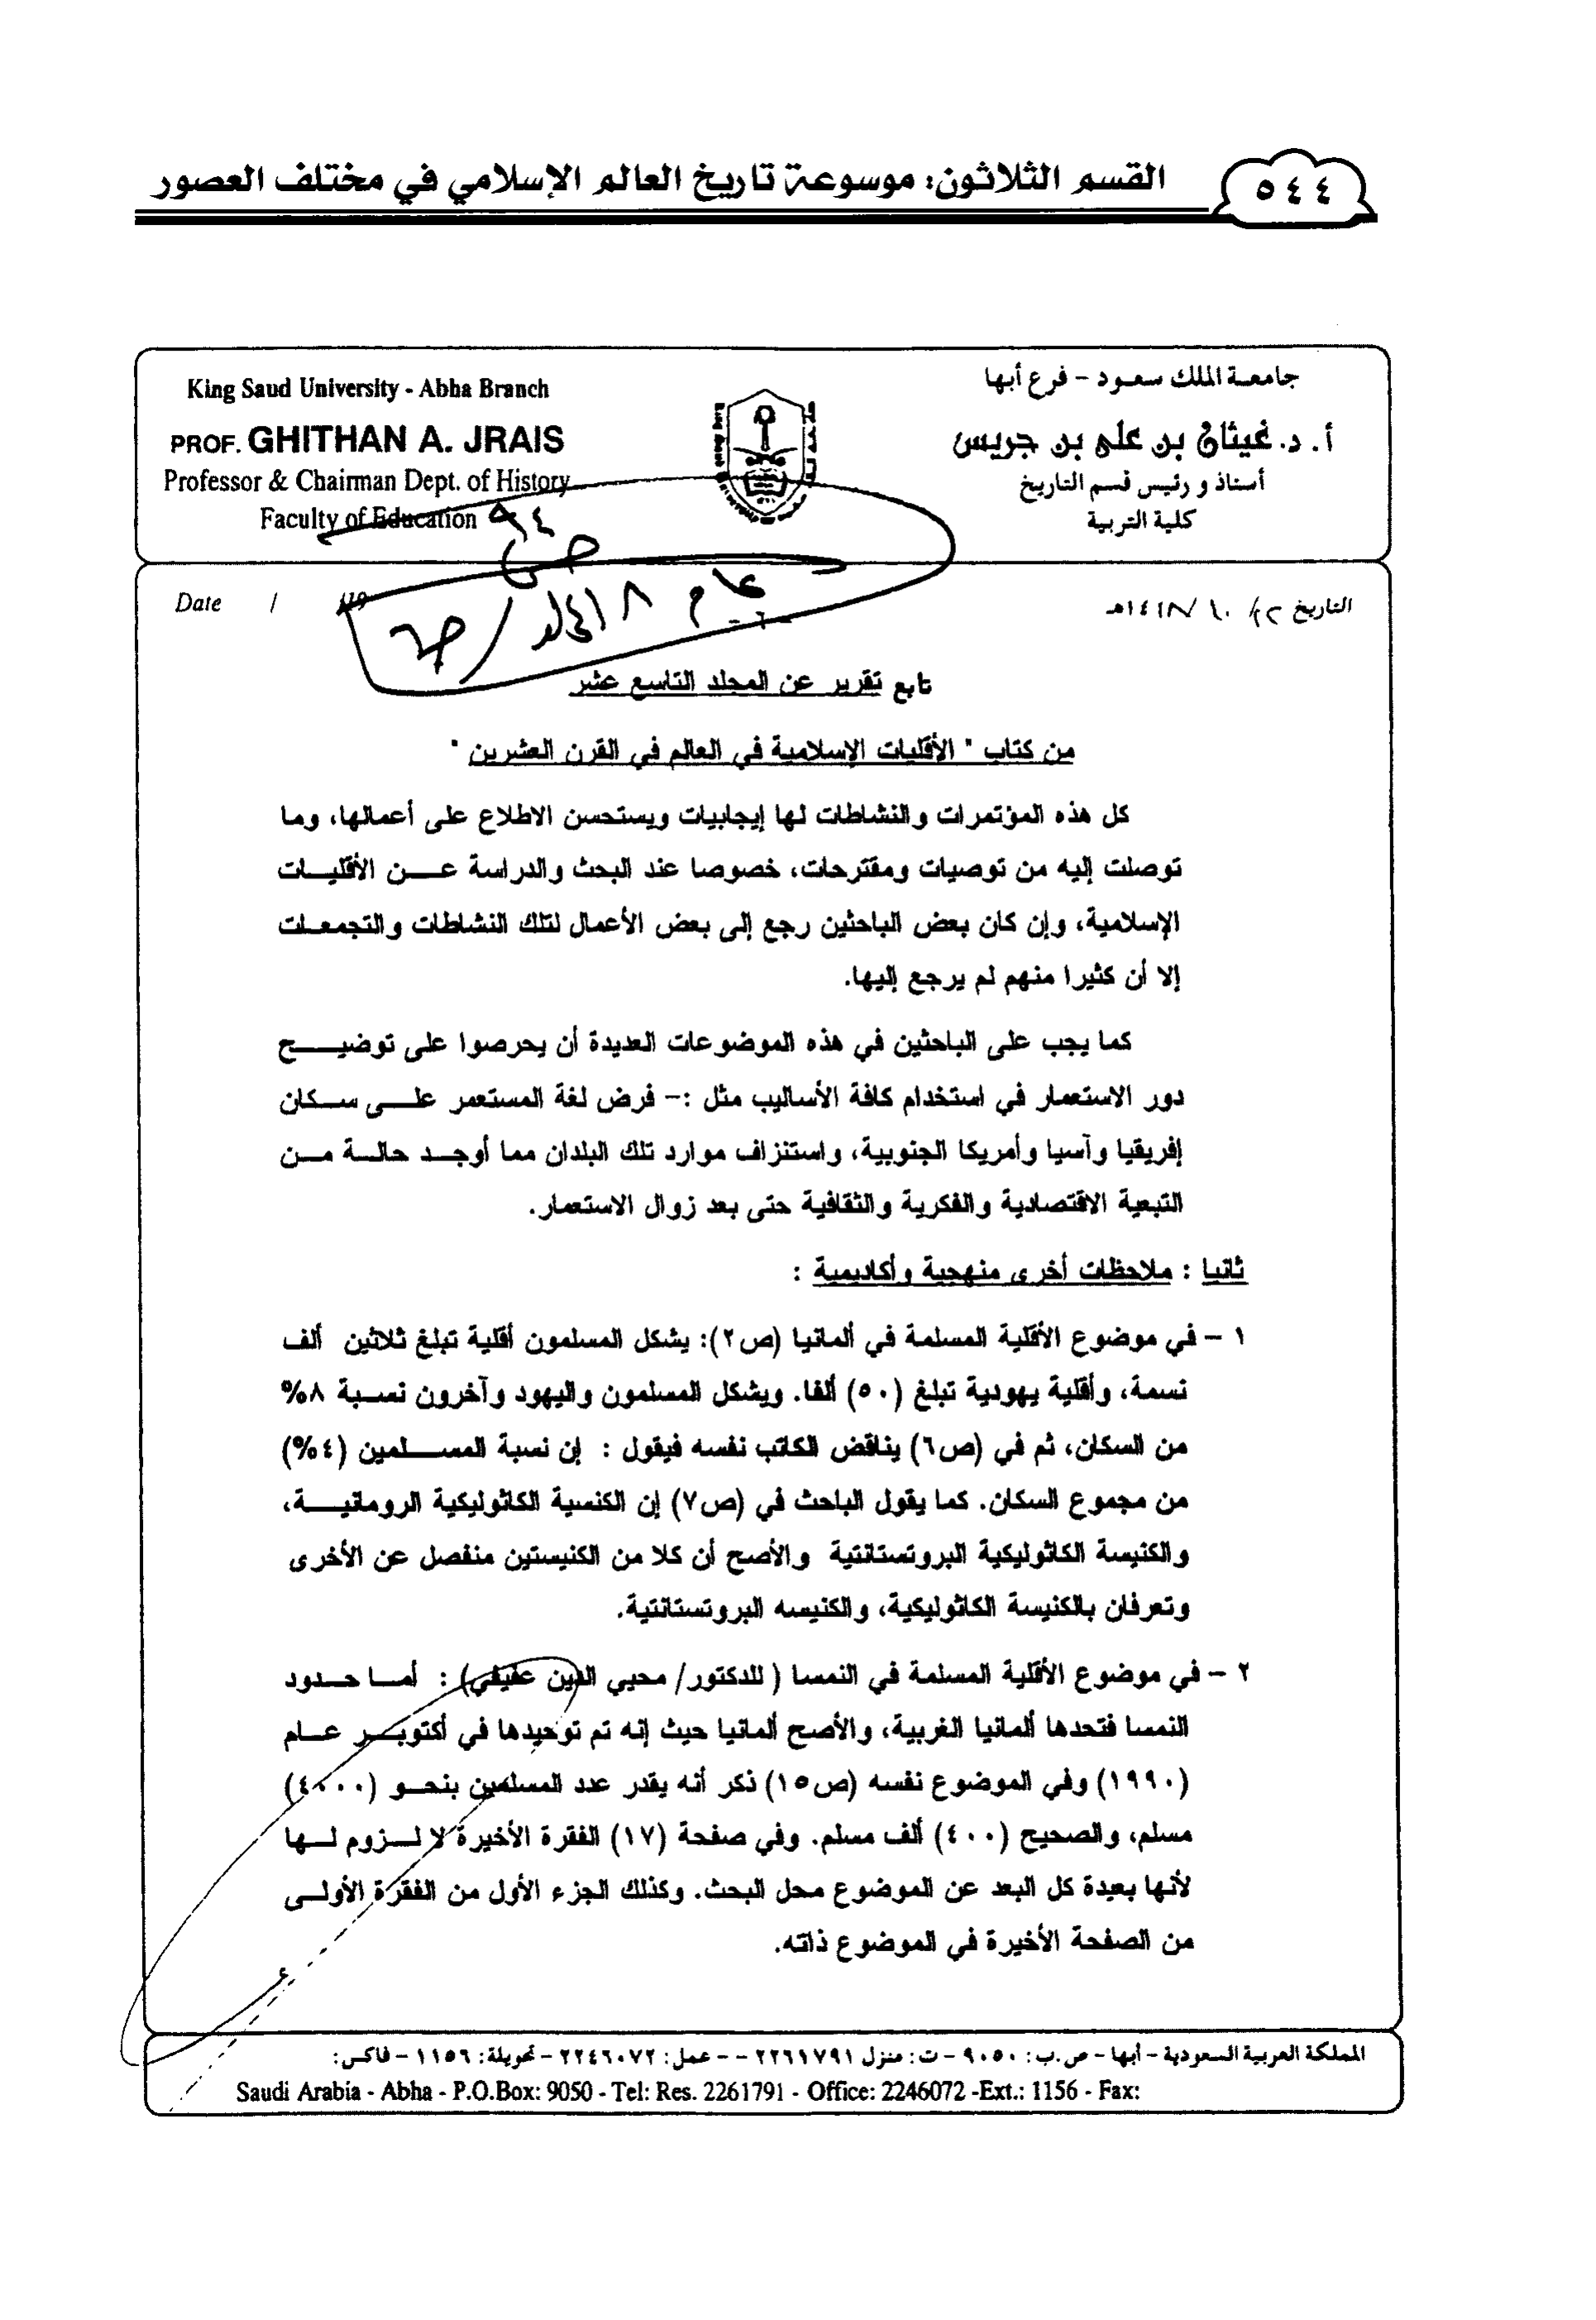 ٥٤٤
القسم الثلاثون: موسوعة تاريخ العالم الإسلامي في مختلف العصور
جامعة الملك سعود - فرع أبها
أ. د. غيثان بن علي بن جريس
أستاذ و رئيس قسم التاريخ
كلية التربية
King Saud University - Abha Branch
PROF. GHITHAN A. JRAIS
Professor & Chairman Dept. of History
Faculty of Education
التاريخ ٢٢/ ١٠/ ١٤١٨هـ
Date / /19
- ٦ -
تابع تقرير عن المجلد التاسع عشر
من كتاب " الأقليات الإسلامية في العالم في القرن العشرين "
كل هذه المؤتمرات والنشاطات لها إيجابيات ويستحسن الاطلاع على أعمالها، وما
توصلت إليه من توصيات ومقترحات، خصوصا عند البحث والدراسة عن الأقليات
الإسلامية، وإن كان بعض الباحثين رجع إلى بعض الأعمال لتلك النشاطات والتجمعات
إلا أن كثيرا منهم لم يرجع إليها.
كما يجب على الباحثين في هذه الموضوعات العديدة أن يحرصوا على توضيح
دور الاستعمار في استخدام كافة الأساليب مثل :- فرض لغة المستعمر على سكان
إفريقيا وآسيا وأمريكا الجنوبية، واستنزاف موارد تلك البلدان مما أوجد حالة من
التبعية الاقتصادية والفكرية والثقافية حتى بعد زوال الاستعمار.
ثانيا : ملاحظات أخرى منهجية وأكاديمية :
١ - في موضوع الأقلية المسلمة في ألمانيا (ص٢): يشكل المسلمون أقلية تبلغ ثلاثين ألف
نسمة، وأقلية يهودية تبلغ (٥٠) ألفا. ويشكل المسلمون واليهود وآخرون نسبة ٨%
من السكان، ثم في (ص٦) يناقض الكاتب نفسه فيقول : إن نسبة المسلمين (٤%)
من مجموع السكان. كما يقول الباحث في (ص٧) إن الكنسية الكاثوليكية الرومانية،
والكنيسة الكاثوليكية البروتستانتية والأصح أن كلا من الكنيستين منفصل عن الأخرى
وتعرفان بالكنيسة الكاثوليكية، والكنيسه البروتستانتية.
٢ - في موضوع الأقلية المسلمة في النمسا ( للدكتور/ محيي الدين عفيفي) : أما حدود
النمسا فتحدها ألمانيا الغربية، والأصح ألمانيا حيث إنه تم توحيدها في أكتوبر عام
(١٩٩٠) وفي الموضوع نفسه (ص١٥) ذكر أنه يقدر عدد المسلمين بنحو (٤٠٠٠)
مسلم، والصحيح (٤٠٠) ألف مسلم. وفي صفحة (١٧) الفقرة الأخيرة لا لزوم لها
لأنها بعيدة كل البعد عن الموضوع محل البحث. وكذلك الجزء الأول من الفقرة الأولى
من الصفحة الأخيرة في الموضوع ذاته.
المملكة العربية السعودية - أبها - ص.ب: ٩٠٥٠ - ت: منزل ٢٢٦١٧٩١ - - عمل: ٢٢٤٦٠٧٢ - تحويلة: ١١٥٦ - فاكس:
Saudi Arabia - Abha - P.O.Box: 9050 - Tel: Res. 2261791 - Office: 2246072 -Ext.: 1156 - Fax: